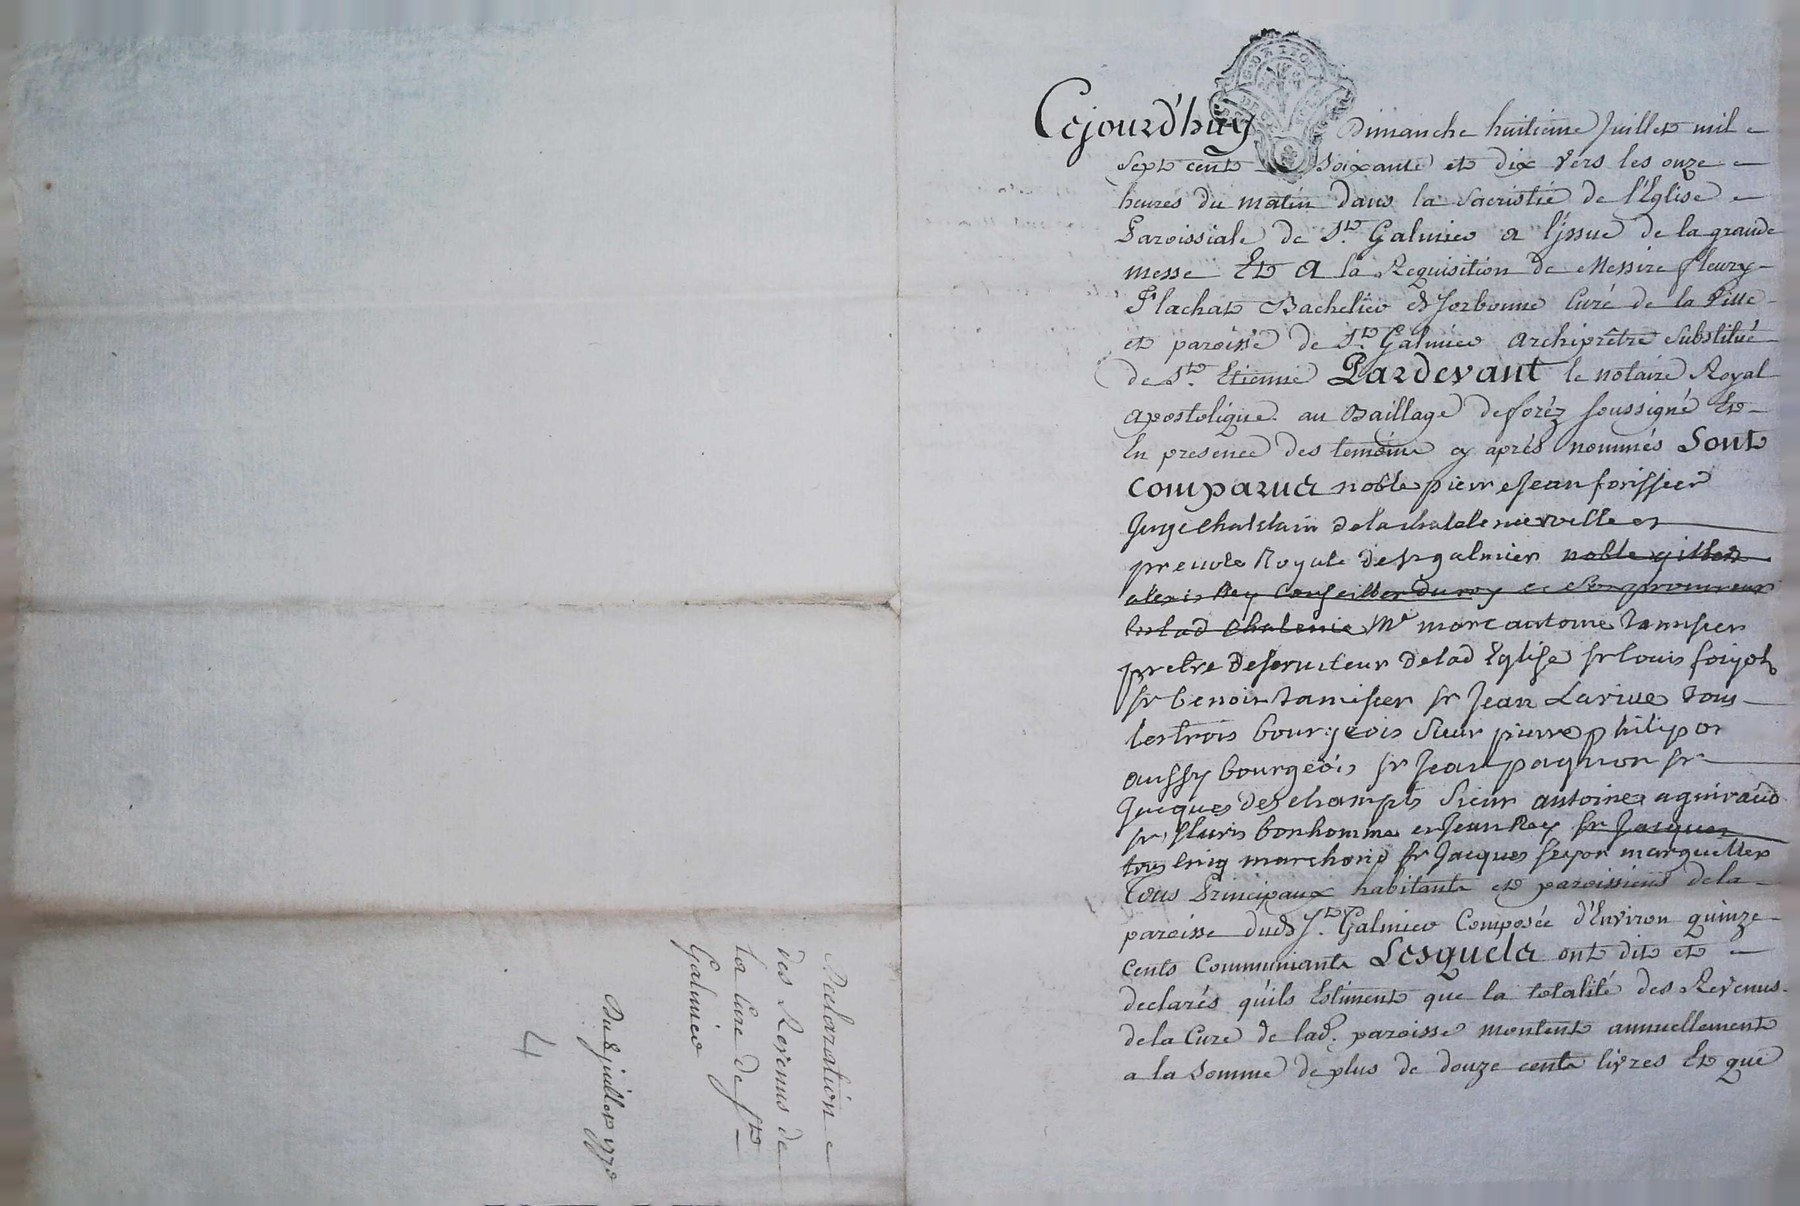 Cejourd'huy Dimanche huitieme Juillet mil
Sept cent Soixante et dix vers les onze
heures du matin dans la Sacristie de l'Eglise
Paroissiale de St. Galmier a l'jssue de la grande
messe Et a la Requisition de Messire fleury
Flachat Bachelier de Sorbonne Curé de la Ville
et paroisse de St. Galmier archiprêtre Substitué
de St. Etienne Pardevant le notaire Royal
apostolique au Baillage de forêz soussigné Et
En presence des temoins cy après nommés Sont
comparus noble pierre Jean forissier
Juge Chastelain de la
prevote Royale de st galmier noble gilbert
alexis Rey Conseiller du roy et Son procureur
en lad Chatenie Me marc antoine tamisier
pretre deserviteur de lad Eglise sr louis
sr benoir tamisier sr Jean Larive tous
les trois bourgeois Sieur pierre philipon
aussy bourgeois sr Jean paqnon sr
Jacques deschamps Sieur antoine aguiraud
sr fleuris bonhomme et Jean Rey sr Jacques
tous cinq marchand sr Jacques marguiller
Tous Principaux habitants et paroissiens de la
paroisse dud St. Galmier Composée d'Environ quinze
cents Communiants Lesquels ont dit et
declarés qu'ils Estiment que la totalité des Revenus
de la Cure de lad. paroisse montent annuellement
a la Somme de plus de douze cents livres Et que
Declaration
des Revenus de
la Cure de St
Galmier
Du 8 juillet 1770
4